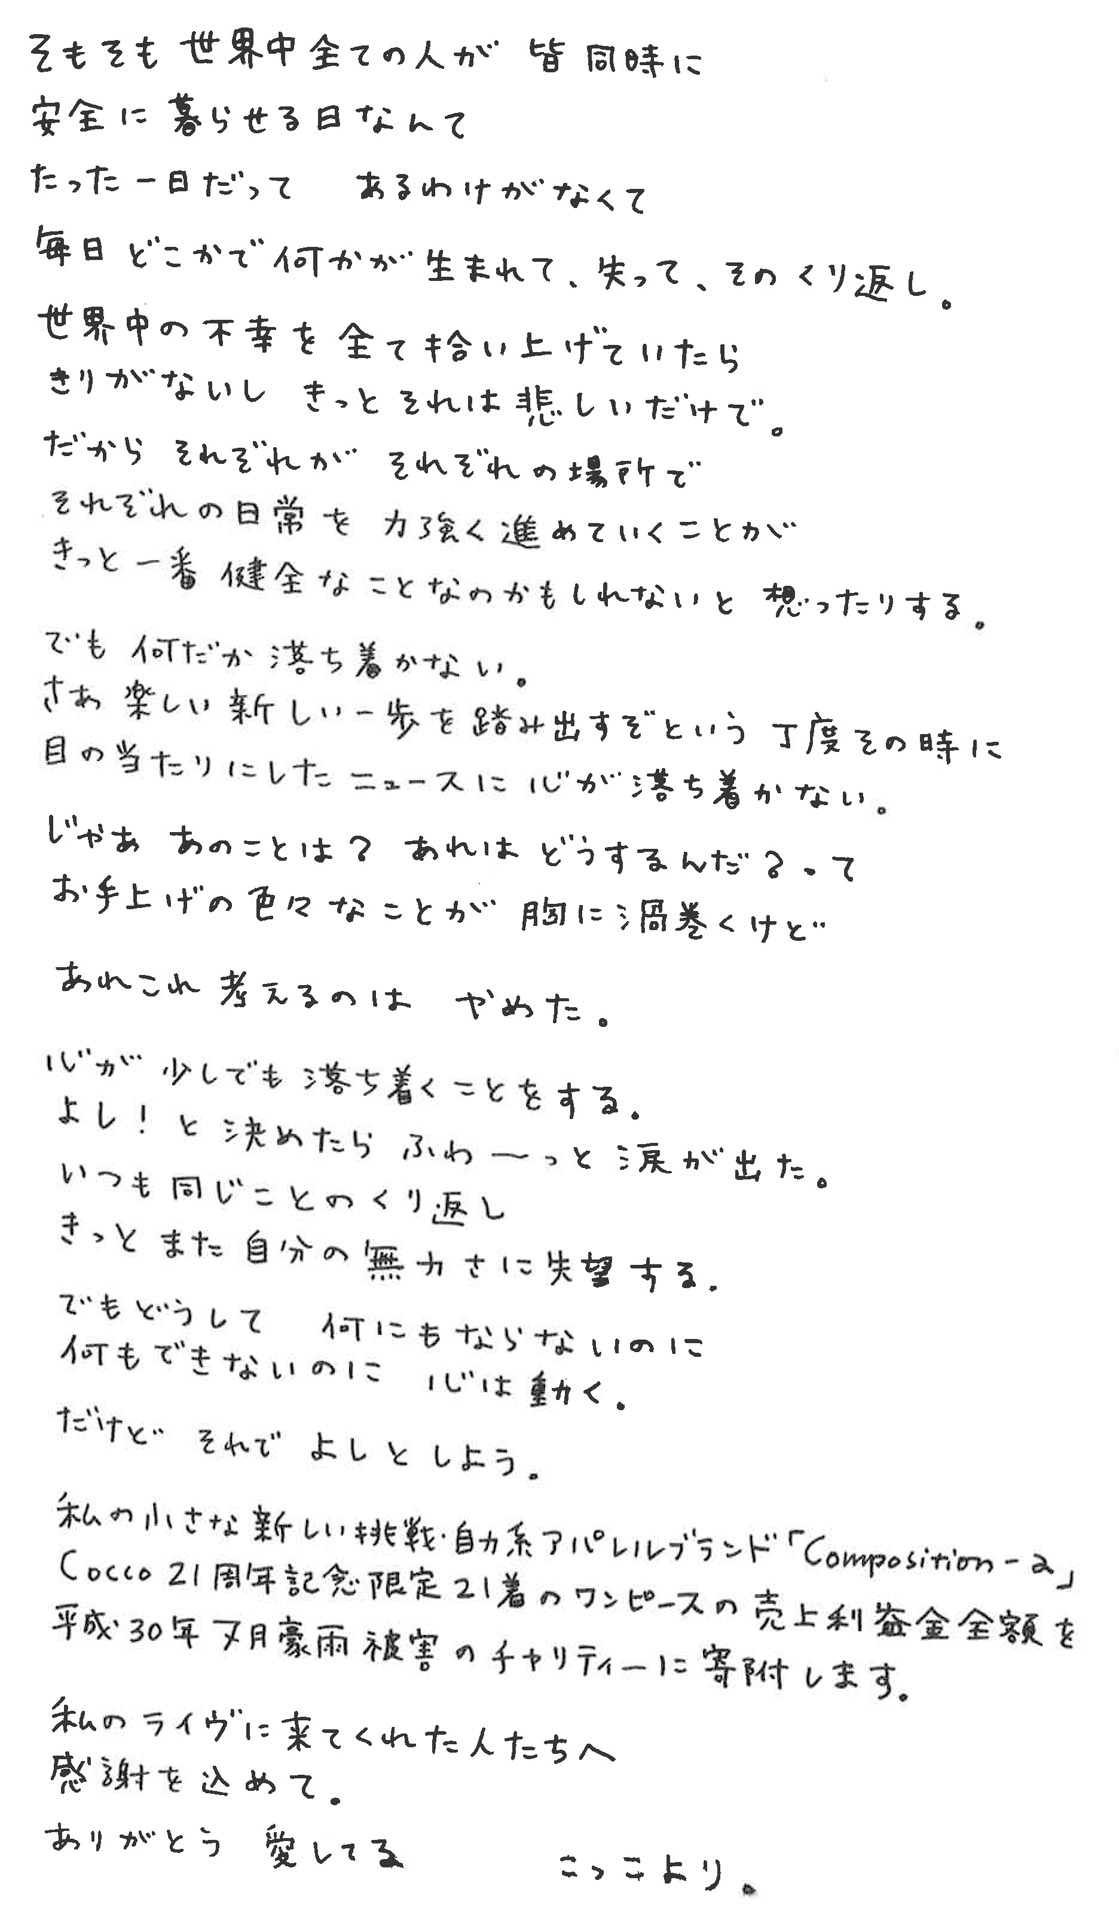 そもそも 世界中全ての人が 皆 同時に
安全に 暮らせる日なんて
たった一日だって あるわけがなくて
毎日 どこかで何かが 生まれて、失って、そのくり返し。
世界中の不幸を 全て拾い上げていたら
きりがないし きっとそれは悲しいだけで。
だから それぞれが それぞれの場所で
それぞれの日常を 力強く進めていくことが
きっと一番 健全なことなのかもしれないと 想ったりする。
でも 何だか落ち着かない。
さあ 楽しい新しい一歩を踏み出すぞという 丁度その時に
目の当たりにしたニュースに 心が落ち着かない。
じゃあ あのことは? あれは どうするんだ?って
お手上げの色々なことが 胸に渦巻くけど
あれこれ考えるのは やめた。
心が 少しでも落ち着くことをする。
よし!と決めたら ふわ〜っと涙が出た。
いつも同じことのくり返し
きっとまた自分の無力さに失望する。
でもどうして 何にもならないのに
何もできないのに 心は動く。
だけど それで よしとしよう。
私の小さな新しい挑戦・自力系アパレルブランド「Composition-a」
Cocco 21周年記念限定21着のワンピースの売上利益金全額を
平成30年7月豪雨被害のチャリティーに寄附します。
私のライヴに来てくれた人たちへ
感謝を込めて。
ありがとう 愛してる
こっこより。